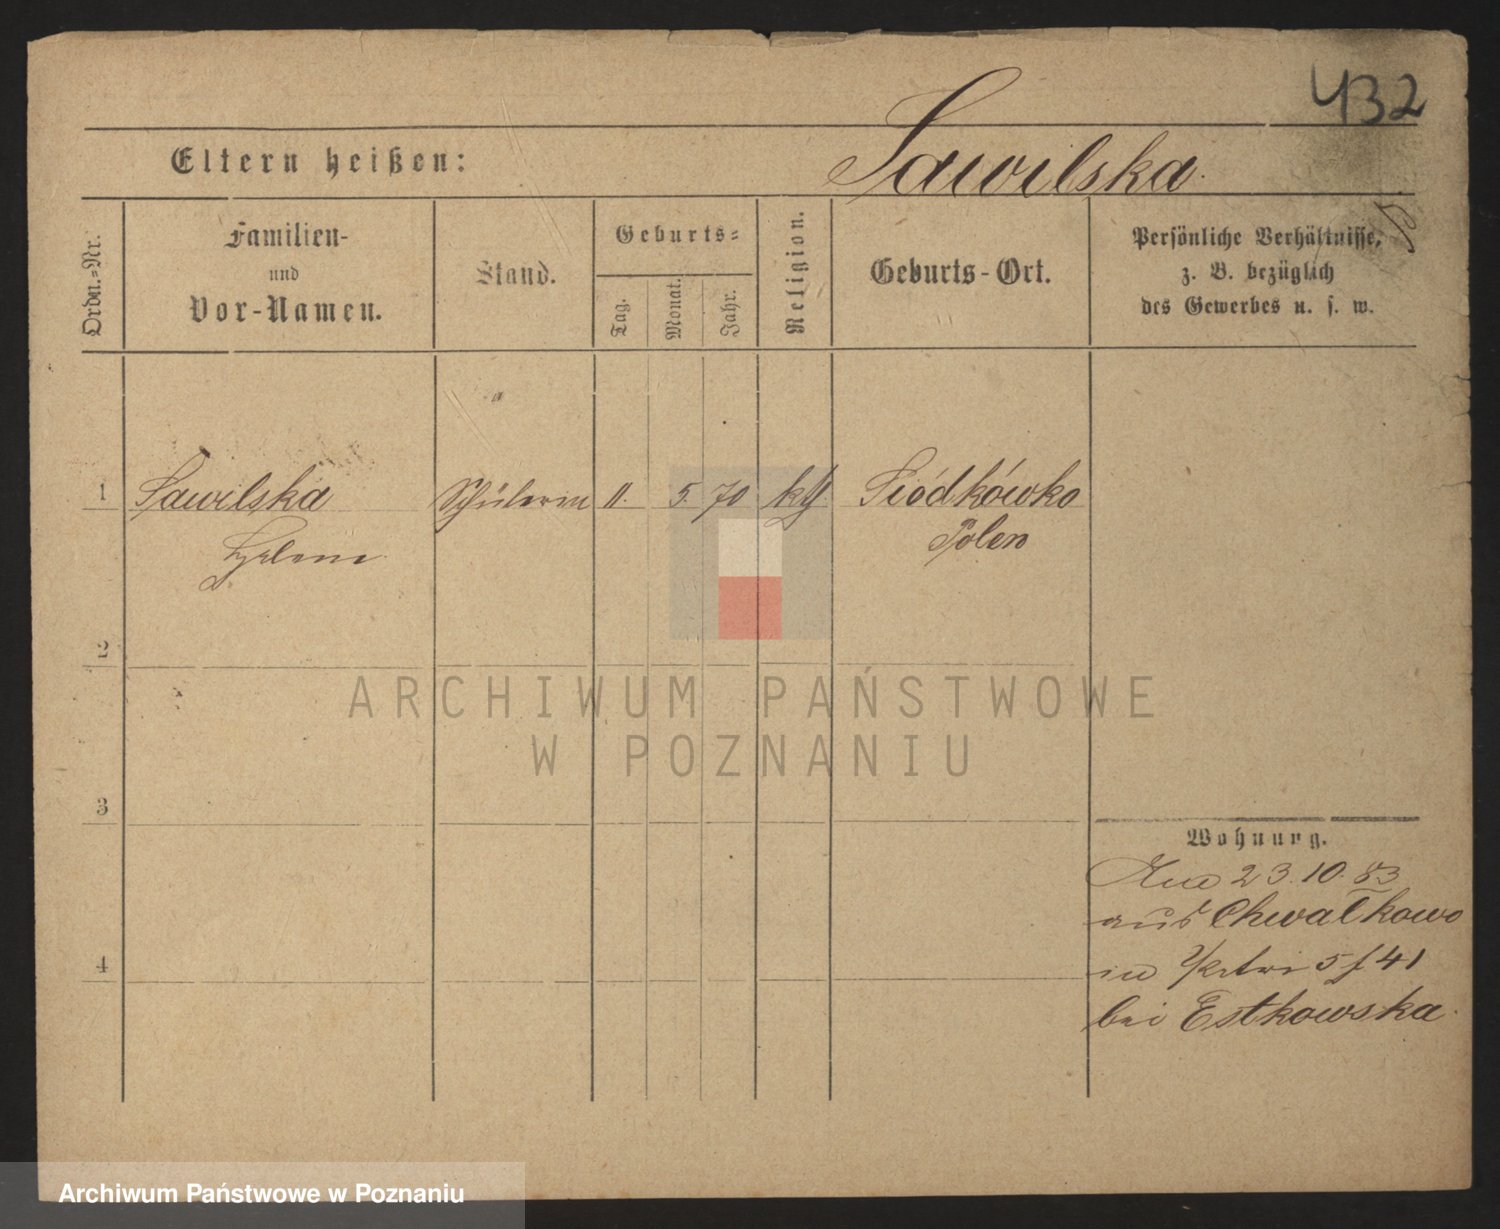 432
Eltern heißen:
Sawilska
Ordn.-Nr.
Familien-
und
Vor-Namen.
Stand.
Geburts-
Tag.
Monat.
Jahr.
Religion.
Geburts-Ort.
Persönliche Verhältnisse,
z. B. bezüglich
des Gewerbes u. s. w.
1 Sawilska Schülerin 11. 5. 70 kth.
Helene Polen
2
3
4
Wohnung.
23.10.83
aus Chwałkowo
in Petri 5 f 41
bei Estkowska.
ARCHIWUM PAŃSTWOWE
W POZNANIU
Archiwum Państwowe w Poznaniu